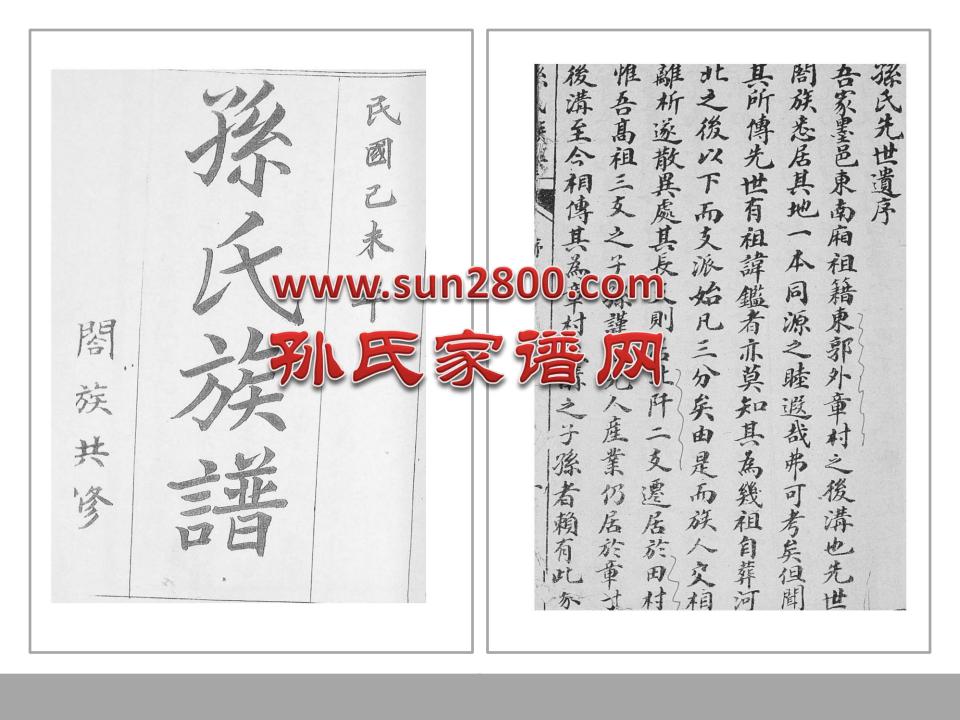 民國己未年
孫氏族譜
閤族共修
www.sun2800.com
孙氏家谱网
孫氏先世遺序
吾家墨邑東南廂祖籍東郭外章村之後溝也先世
閤族悉居其地一本同源之睦遐哉弗可考矣但聞
其所傳先世有祖諱鑑者亦莫知其為幾祖自葬河
北之後以下而支派始凡三分矣由是而族人交相
離析遂散異處其長 則 阡二支遷居於田村
惟吾高祖三支之子孫謹 人產業仍居於章村
後溝至今相傳其為章村 之子孫者賴有此